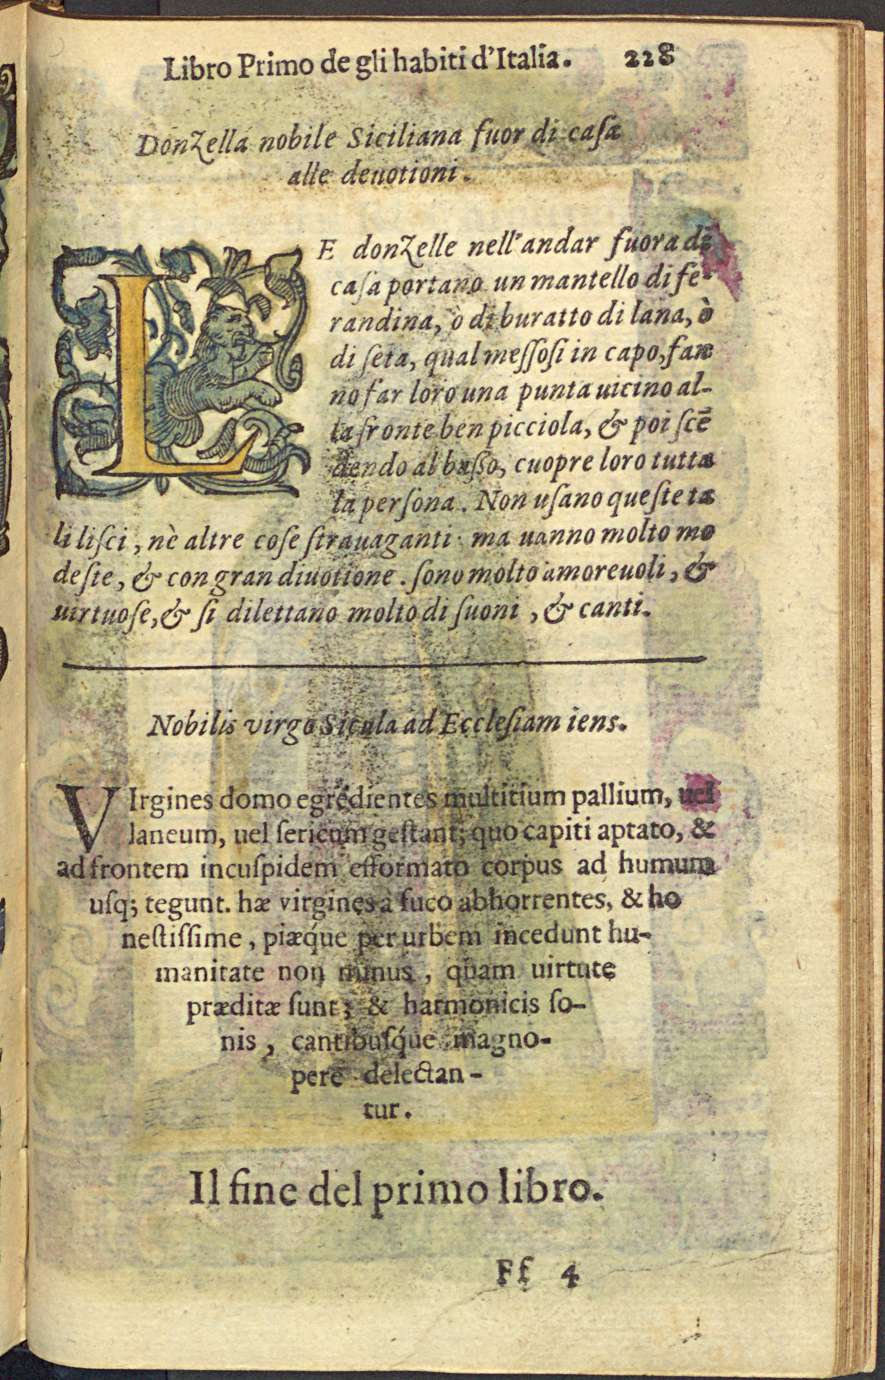 Libro Primo de gli habiti d'Italia. 228
Donzella nobile Siciliana fuor di casa
alle deuotioni.
LE donzelle nell'andar fuora di
casa portano un mantello di fe-
randina, ò di buratto di lana, ò
di seta, qual messosi in capo, fan
no far loro una punta uicino al-
la fronte ben picciola, & poi scē
dendo al basso, cuopre loro tutta
la persona. Non usano queste ta
li lisci, nè altre cose strauaganti· ma uanno molto mo
deste, & con gran diuotione. sono molto amoreuoli, &
uirtuose, & si dilettano molto di suoni, & canti.
Nobilis virgo Sicula ad Ecclesiam iens.
VIrgines domo egredientes multitium pallium, uel
laneum, uel sericum gestant; quo capiti aptato, &
ad frontem in cuspidem efformato corpus ad humum
usq; tegunt. hæ virgines à fuco abhorrentes, & ho
nestissime, piæq́ue per urbem incedunt hu-
manitate non minus, quam uirtute
præditæ sunt; & harmonicis so-
nis, cantibusq́ue magno-
pere delectan-
tur.
Il fine del primo libro.
Ff 4